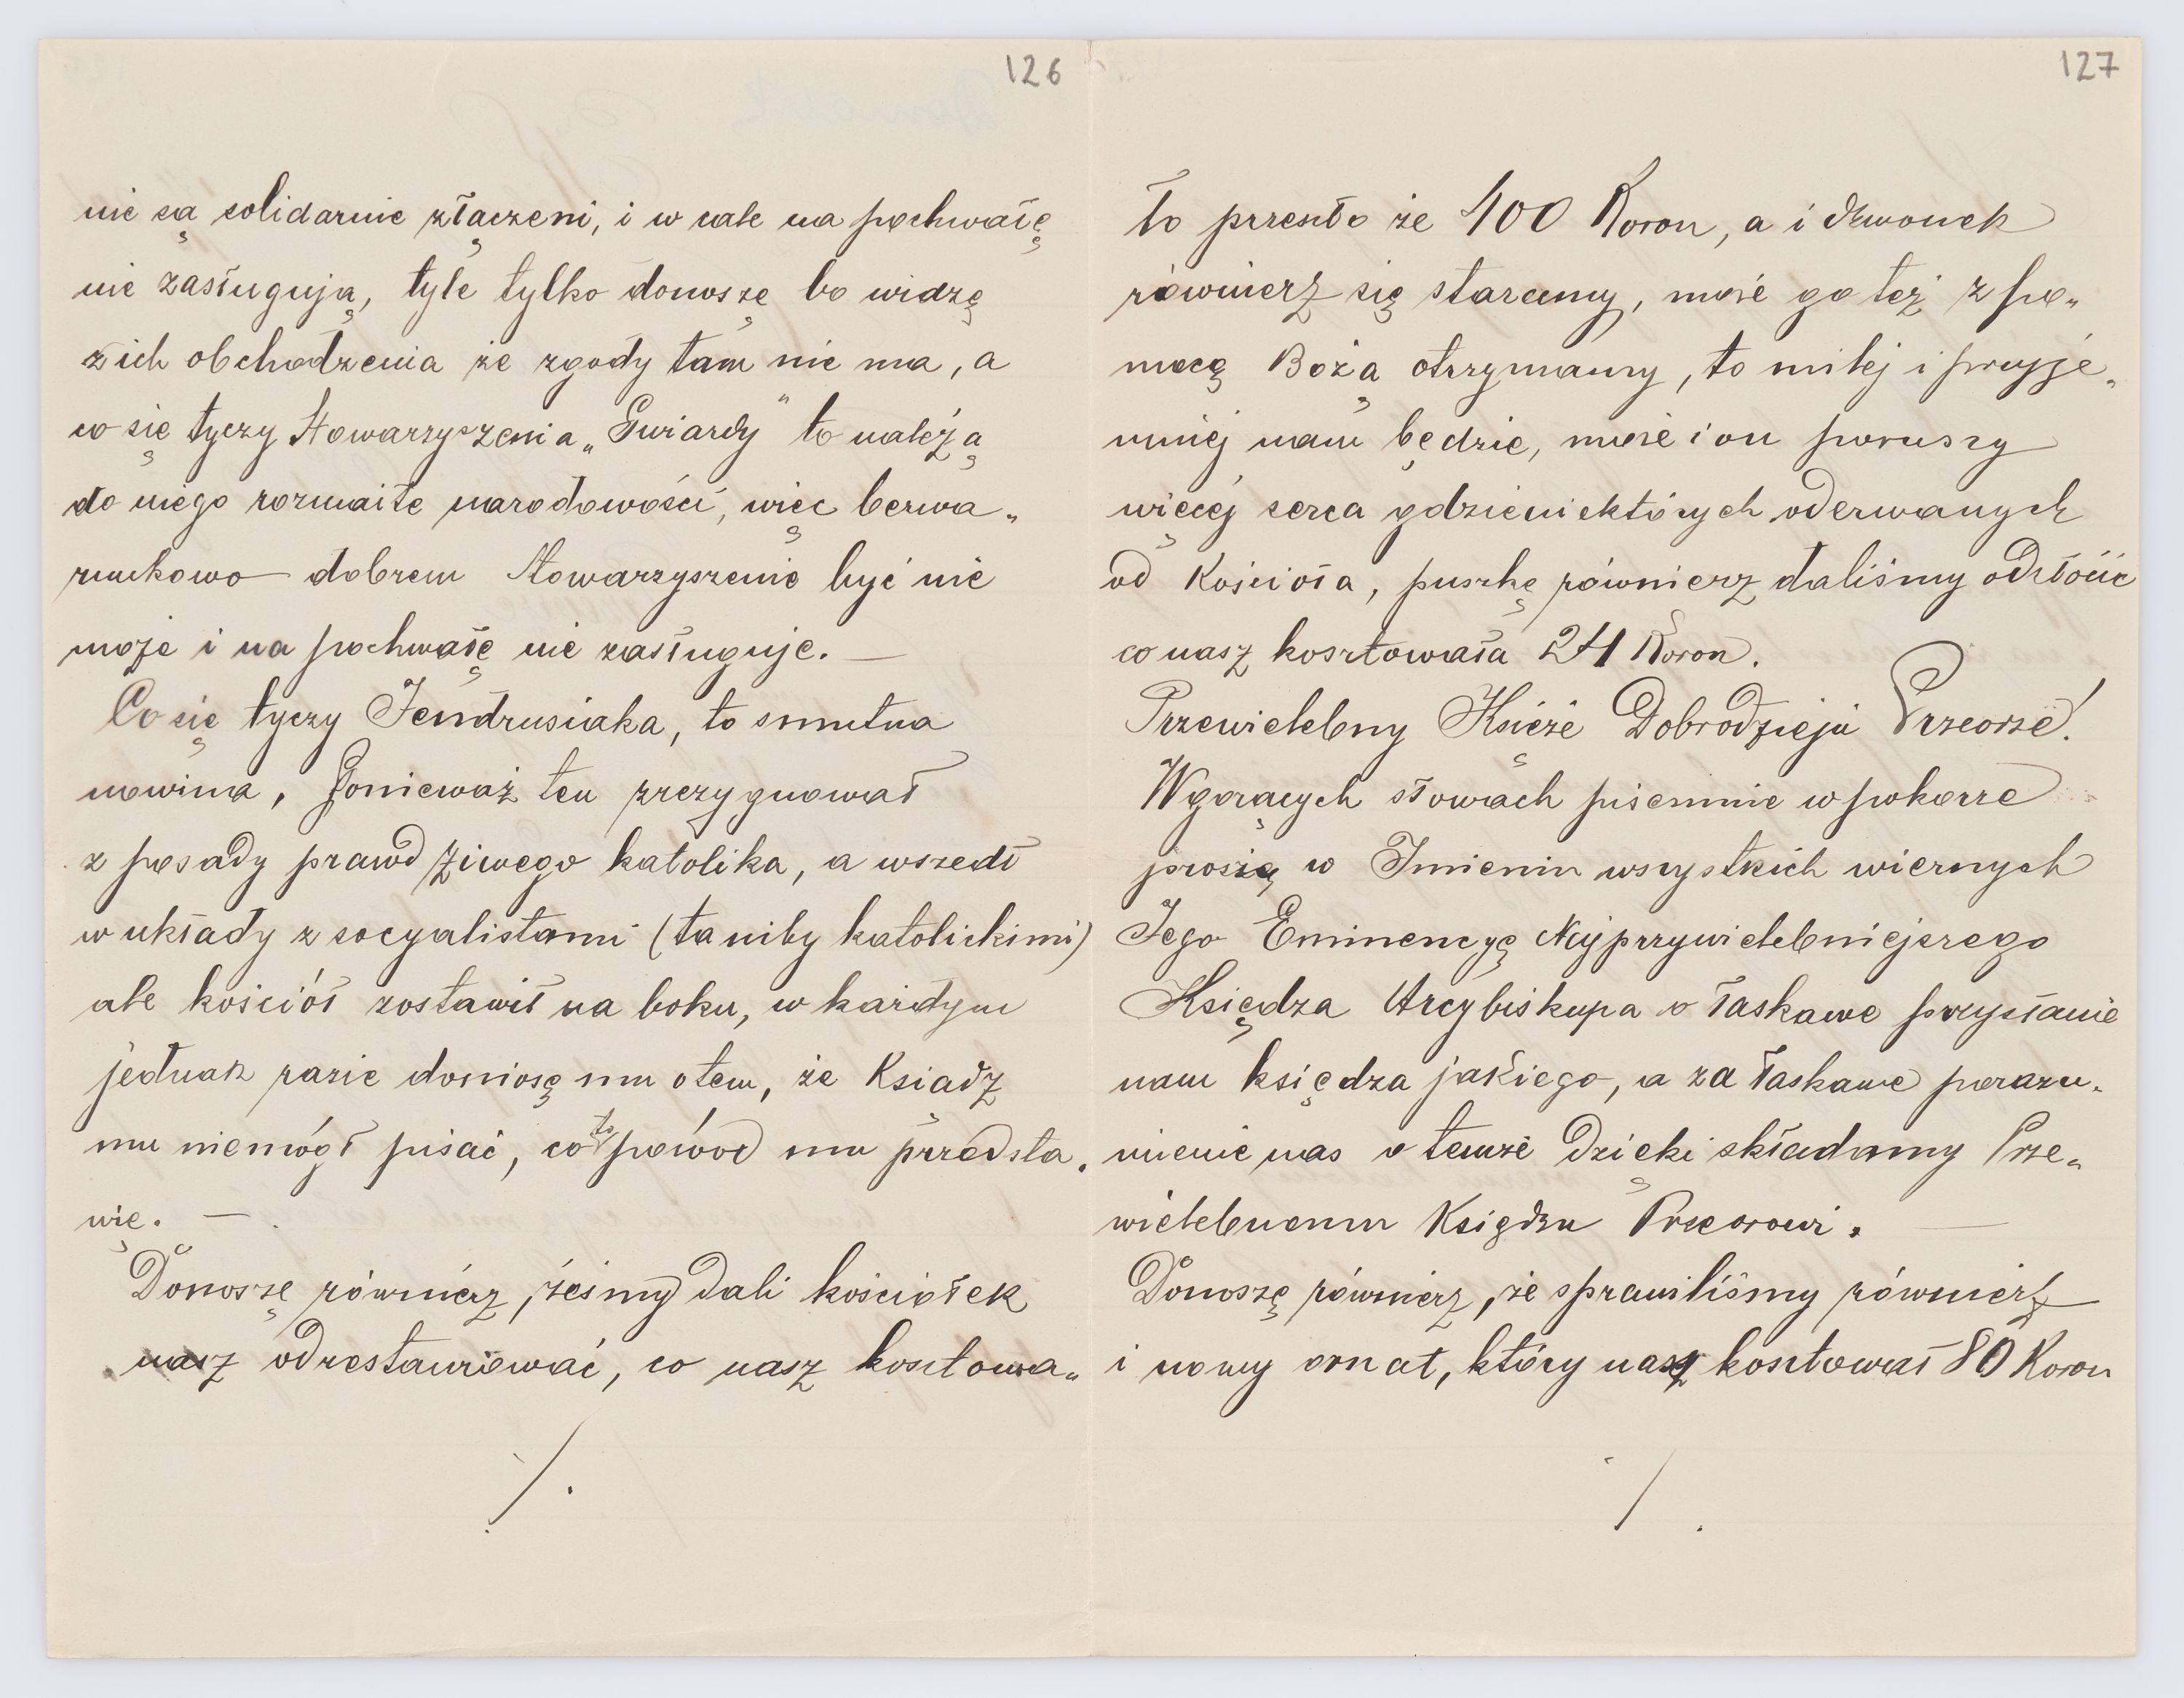 126
nie są solidarnie złączeni, i w cale na pochwałę
nie zasługują, tyle tylko donoszę bo widzę
z ich obchodzenia że zgody tam nie ma, a
co się tyczy Stowarzyszenia „Gwiazdy" to należą
do niego rozmaite narodowości, więc berwa„
runkowo dobrem Stowarzyszenie być nie
może i na pochwałę nie zasługuje. —
Co się tyczy Jendrusiaka, to smutna
nowina, Ponieważ ten zrezygnował
z posady prawdziwego katolika, a wszedł
w układy z socyalistami (ta niby katolickimi)
ale kościół zostawił na boku, w każdym
jednak razie doniosę mu otem, że Ksiadz
mu niemógł pisać, co to powód mu przedsta„
wię. —
Donoszę równierz, żeśmy dali kościołek
nasz odrestaurować, co nasz kosztowa„
/.
127
ło przeszło że 400 Koron, a i dzwonek
równierz się staramy, może go też z po„
mocą Bożą otrzymamy, to milej i przyje„
mniej nam będzie, może i on poruszy
więcej serca gdzieniektórych oderwanych
od Kościoła, puszkę równierz daliśmy odzłócić
co nasz kosztowała 24 Koron.
Przewielebny Księże Dobrodzieju Przeorze!
W gorących słowach pisemnie w pokorze
proszą w Imieniu wszystkich wiernych
Jego Eminencyę Najprzywielebniejszego
Księdza Arcybiskupa o łaskawe przysłanie
nam księdza jakiego, a za łaskawe porozu„
mienie nas o temże Dzięki składamy Prze„
wielebnemu Księdzu Przeorowi. —
Donoszę równierz, że sprawiliśmy równierz
i nowy ornat, który nasz kosztował 80 Koron
/.